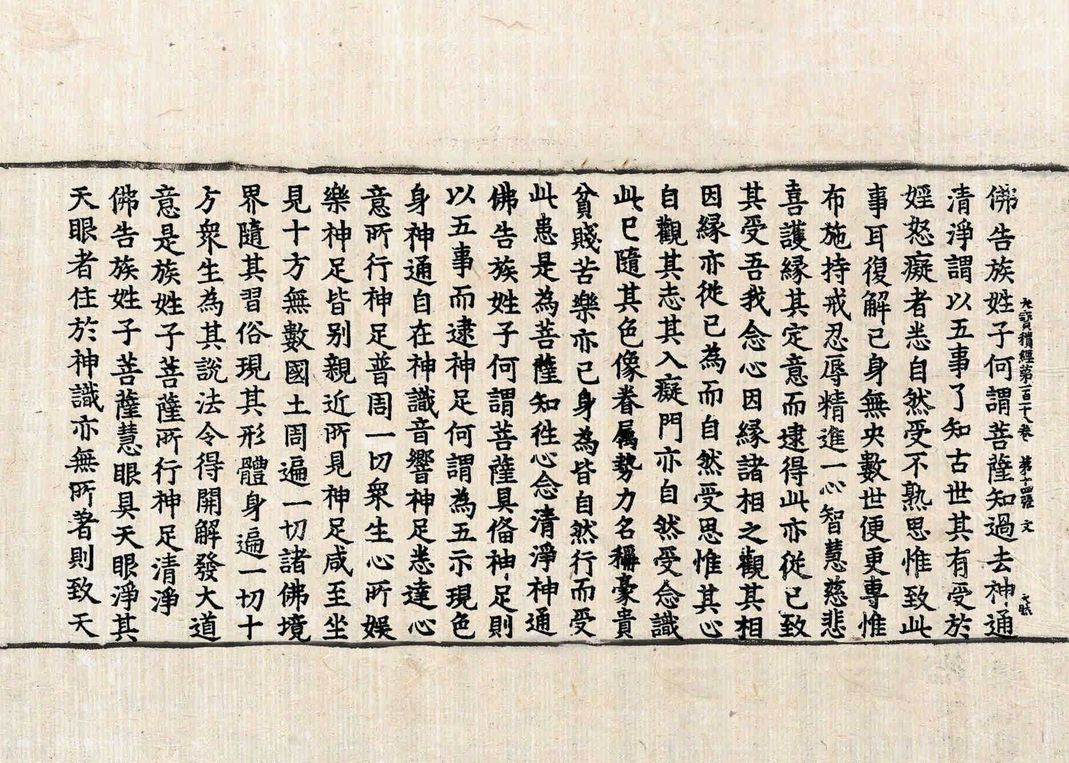 佛告族姓子何謂菩薩知過去神通
大寶積經第一百十八卷 第十四張 文
清淨謂以五事了知古世其有受於
婬怒癡者悉自然受不熟思惟致此
事耳復解己身無央數世便更專惟
布施持戒忍辱精進一心智慧慈悲
喜護緣其定意而逮得此亦從己致
其受吾我念心因緣諸相之觀其相
因緣亦從己為而自然受思惟其心
自觀其志其入癡門亦自然受念識
此已隨其色像眷属勢力名稱豪貴
貧賤苦樂亦己身為皆自然行而受
此患是為菩薩知往心念清淨神通
佛告族姓子何謂菩薩具偹神足則
以五事而逮神足何謂為五示現色
身神通自在神識音響神足悉達心
意所行神足普周一切衆生心所娛
樂神足皆别親近所見神足咸至坐
見十方無數國土周遍一切諸佛境
界隨其習俗現其形體身遍一切十
方衆生為其說法令得開解發大道
意是族姓子菩薩所行神足清淨
佛告族姓子菩薩慧眼具天眼淨其
天眼者住於神識亦無所著則致天